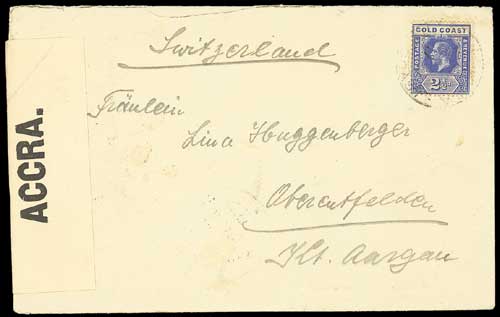 GOLD COAST
POSTAGE
& REVENUE
2½d
Switzerland
Fräulein
Lina Huggenberger
Oberentfelden
Kt. Aargau
ACCRA.